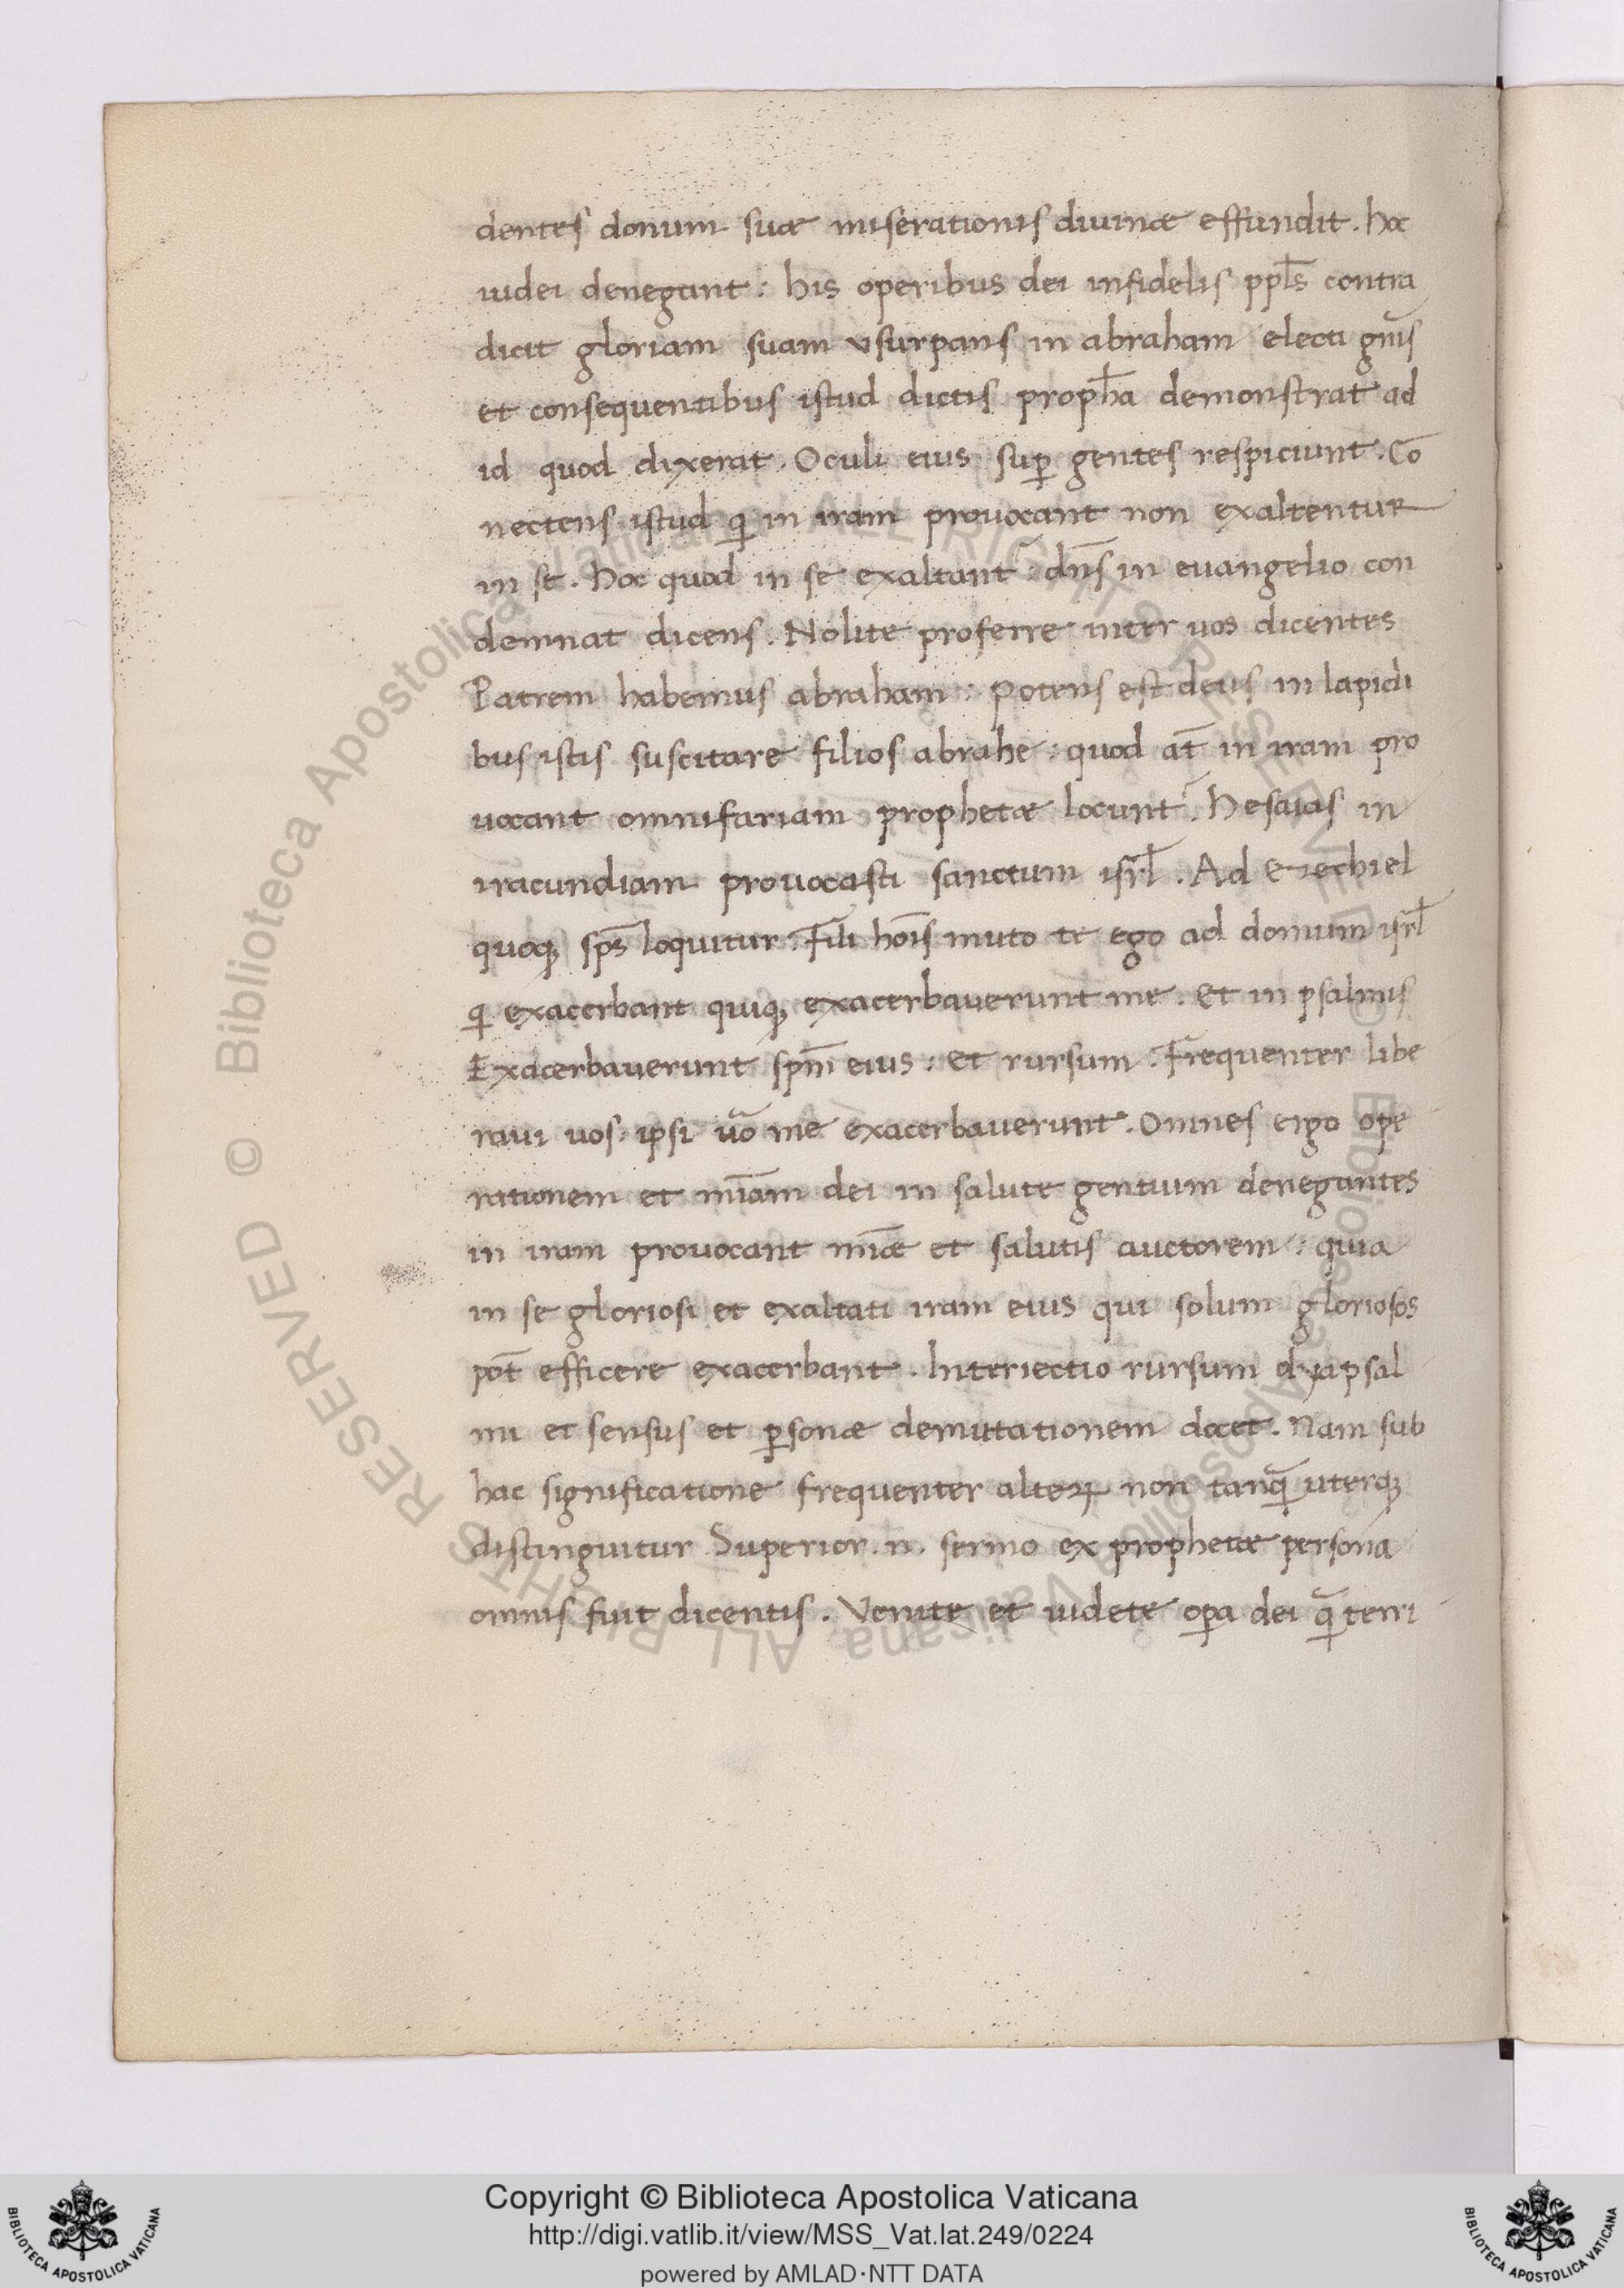 dentes donum suæ miserationis diuinæ effundit. hoc
iudei denegant: his operibus dei infidelis ppl̄s contra
dicit gloriam suam vsurpans in abraham electi gn̄is
et consequentibus istud dictis proph̄a demonstrat ad
id quod dixerat. Oculi eius sup̱ gentes respiciunt. Cō
nectens istud qi in iram prouocant non exaltentur
in se. hoc quod in se exaltant: dn̄s in euangelio con
demnat dicens. Nolite proferre inter uos dicentes
Patrem habemus abraham: potens est deus in lapidi
bus istis suscitare filios abrahe: quod at̄ in iram pro
uocant omnifariam prophetæ locunt᷑. hesaias in
iracundiam prouocasti sanctum isrl̄. Ad ezechiel
quoqꝫ sps̄ loquitur. Fili hoīs muto te ego ad domum isrl̄
qi exacerbant quiqꝫ exacerbauerunt me. et in psalmis
Exacerbauerunt spm̄ eius: et rursum. Frequenter libe
raui uos: ipsi uo᷑ me exacerbauerunt. Omnes ergo ope
rationem et mīam dei in salute gentium denegantes
in iram prouocant mīæ et salutis auctorem: quia
in se gloriosi et exaltati iram eius qui solum gloriosos
pōt efficere exacerbant. Interiectio rursum dyapsal
mi et sensus et ꝑsonæ demutationem docet. Nam sub
hac significatione frequenter alteꝝ non tanqᷓ uterqꝫ
distinguitur Superior .n. sermo ex prophetæ persona
omnis fuit dicentis. Venite et uidete opa dei qᷓ terri
Copyright © Biblioteca Apostolica Vaticana
http://digi.vatlib.it/view/MSS_Vat.lat.249/0224
powered by AMLAD·NTT DATA
BIBLIOTECA APOSTOLICA VATICANA
BIBLIOTECA APOSTOLICA VATICANA
© Biblioteca Apostolica Vaticana ALL RIGHTS RESERVED
© Biblioteca Apostolica Vaticana ALL RIGHTS RESERVED